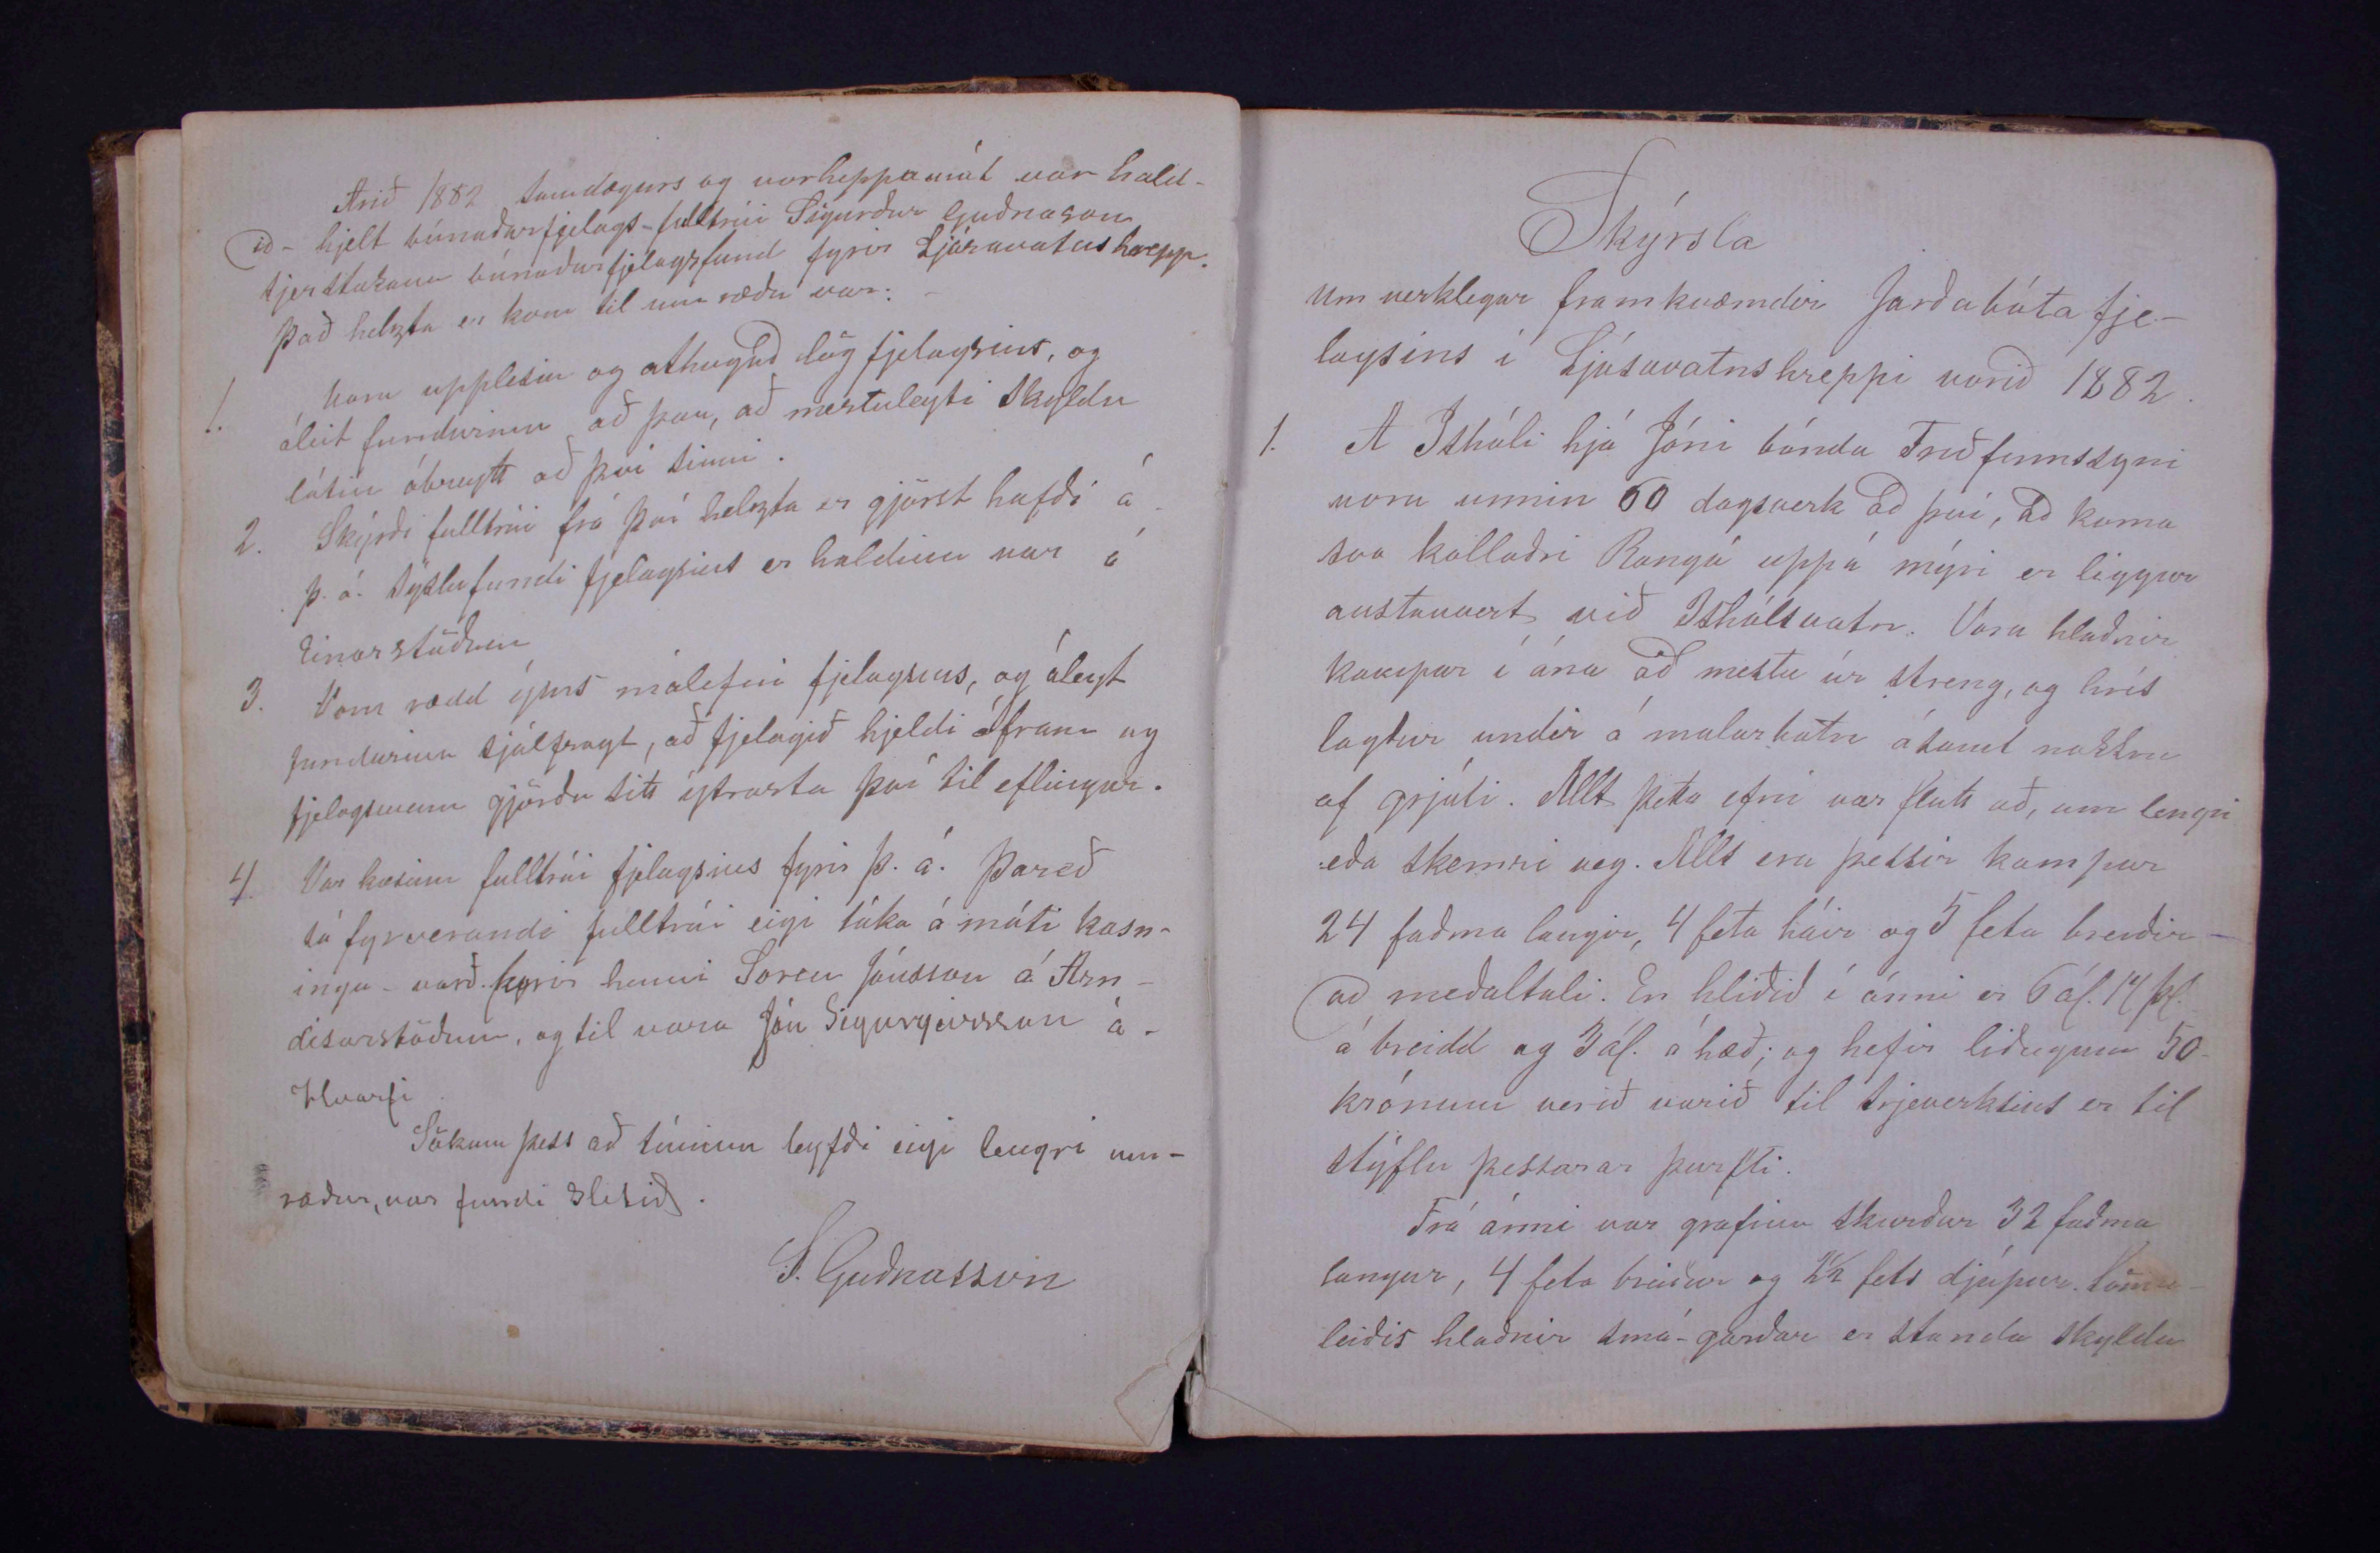 Árið 1882 samdægurs og vorhreppamót var hald-
ið - hjelt búnaðarfjelags-fulltrúi Sigurður Guðnason
sjerstakann búnaðarfjelagsfund fyrir Ljósavatnshrepp.
Það helzta er kom til umræðu var: -
1. Voru upplesin og athuguð lög fjelagsins, og
áleit fundurinn að þau, að mestuleyti skyldu
látin óbreytt að því sinni.
2. Skýrði fulltrúi frá því helzta er gjörst hafði á
þ. á. sýslufundi fjelagsins er haldinn var á
Einarstöðum
3. Voru rædd ýms málefni fjelagsins, og áleyt
fundurinn sjálfsagt, að fjelagið hjeldi áfram og
fjelagsmenn gjörðu sitt ýtrasta því til eflingar.
4. Var kosinn fulltrúi fjelagsins fyrir þ. á. Þareð
sá fyrverandi fulltrúi eigi tóka á móti kosn-
ingu - varð fyrir henni Soren Jónsson á Arn-
disarstöðum, og til vara Jón Sigurgeirsson á -
Hvarfi
Sökum þess að tíminn leyfði eigi lengri um-
ræður, var fundi slitið.
S. Guðnasson
Skýrsla
um verklegar framkvæmdir Jarðabótafje-
lagsins í Ljósavatnshreppi vorið 1882.
1. Á Íshóli hjá Jóni bónda Friðfinnssyni
voru unnin 60 dagsverk að því, að koma
svo kallaðri Rangá uppá mýri er liggur
austanvert við Íshólsvatn. Voru hlaðnir
kampar í ána að mestu úr streng, og hrís
lagður undir á malarbotn ásamt nokkru
af grjóti. Allt þetta efni var flutt að, um lengri
eða skemri veg. Alls eru þessir kampar
24 faðma langir, 4 feta háir og 5 feta breiðir -
að meðaltali. En hliðið í ánni er 6 ál. 14 þl.
á breidd og 3 ál. á hæð; og hefir liðugum 50 -
krónum verið varið til trjeverksins er til
stýflu þessarar þurfti.
Frá ánni var grafinn skurður 32 faðma
langur, 4 feta breiður og 2½ fets djúpur. Sömu-
leiðis hlaðnir smá-garðar er standa skyldu